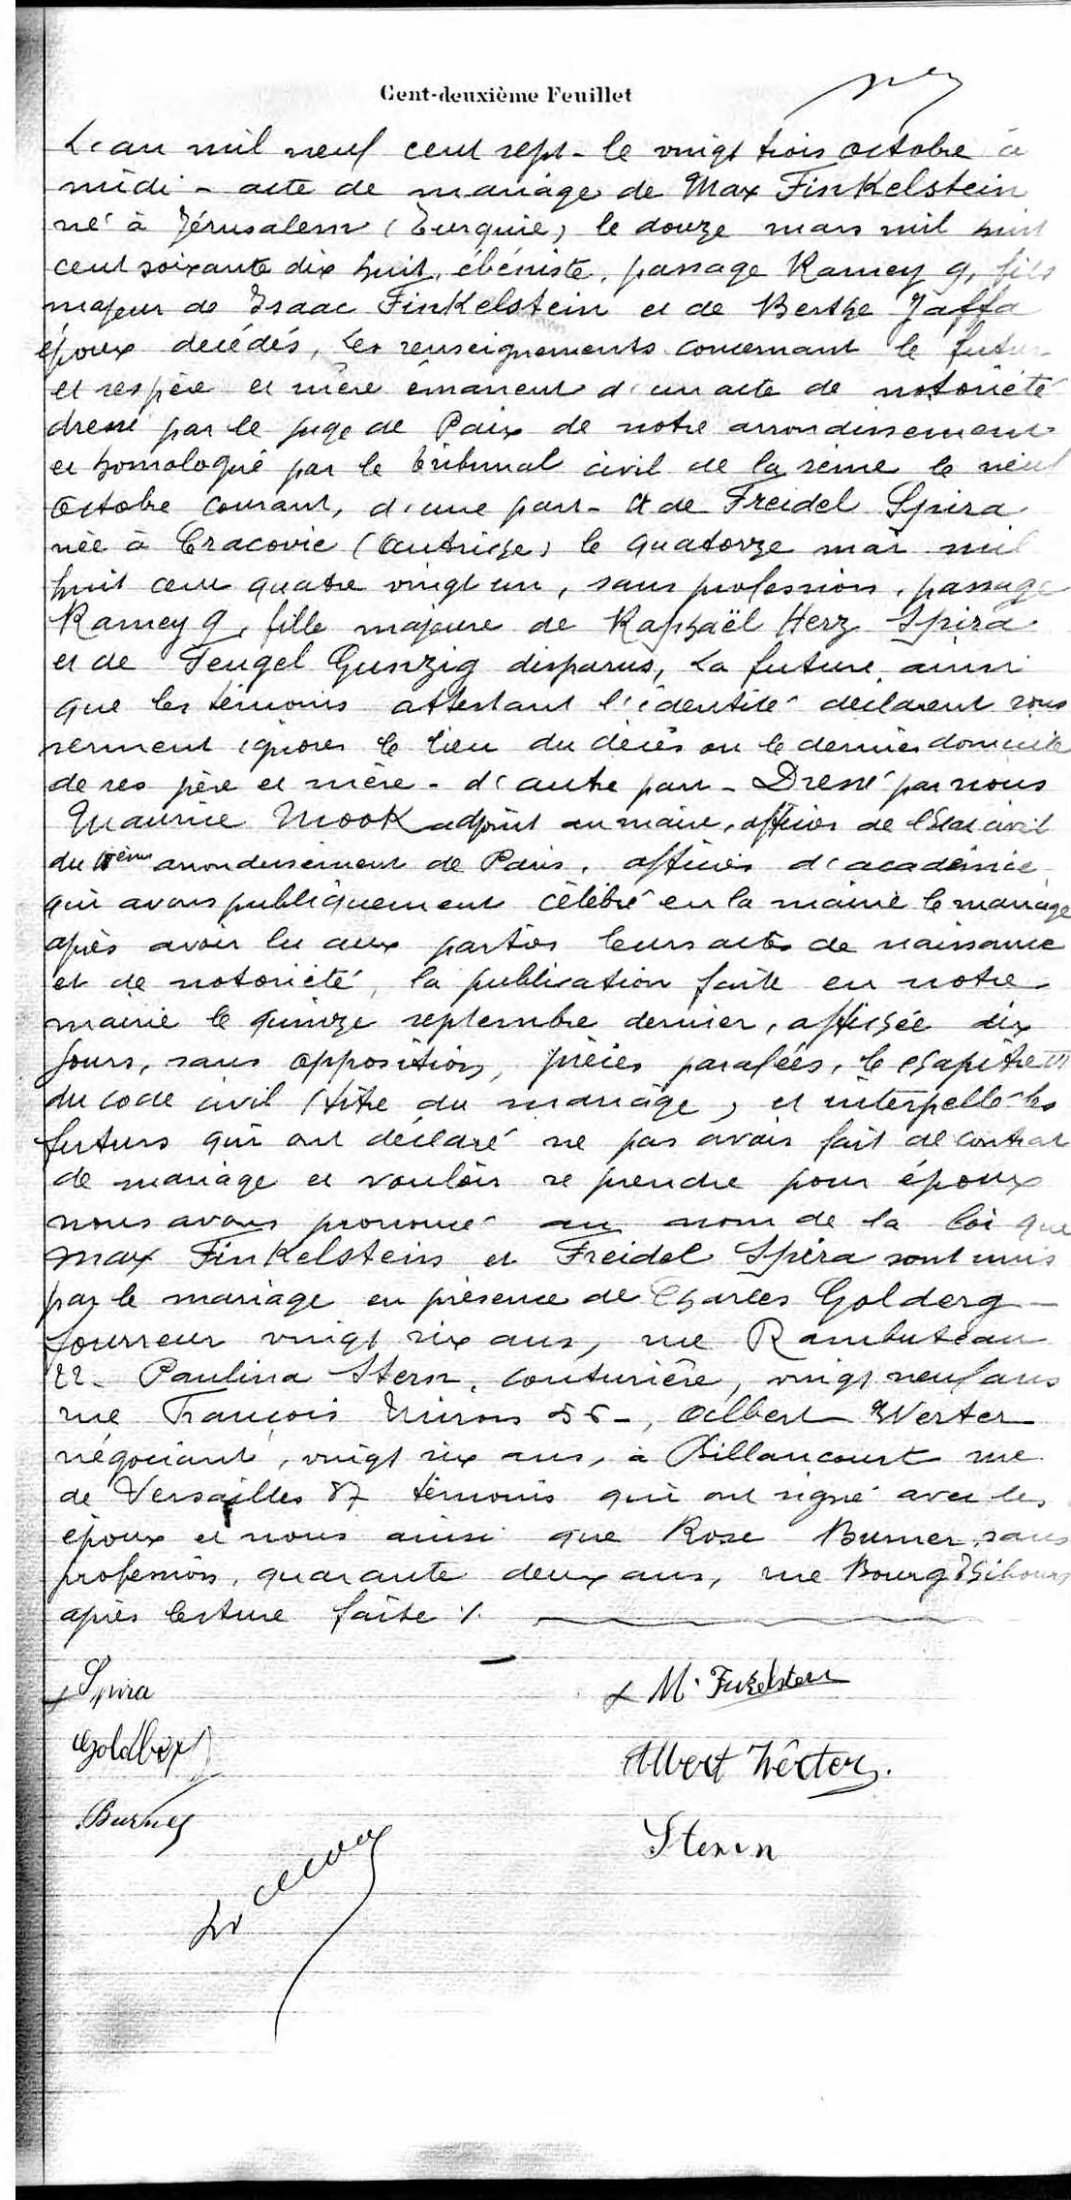 Cent-deuxième Feuillet
L'an mil neuf cent sept - le vingt trois octobre à
midi - acte de mariage de Max Finkelstein
né à Jérusalem (Turquie) le douze mars mil huit
cent soixante dix huit, ébéniste, passage Ramey 9, fils
majeur de Isaac Finkelstein et de Berthe Jaffa
époux décédés, les renseignements concernant le futur
et ses père et mère émanent d'un acte de notoriété
dressé par le juge de Paix de notre arrondissement
et homologué par le tribunal civil de la seine le neuf
Octobre courant, d'une part - et de Freidel Spira
née à Cracovie (Autriche) le quatorze mai mil
huit cent quatre vingt un, sans profession, passage
Ramey 9, fille majeure de Raphaël Herz Spira
et de Tengel Gunzig disparus, la future ainsi
que les témoins attestant l'identité déclarent sous
serment ignorer le lieu du décès ou le dernier domicile
de ses père et mère - d'autre part - Dressé par nous
Maurice Mook adjoint au maire, officier de l'Etat civil
du arrondissement de Paris, officier d'académie
qui avons publiquement célébré en la mairie le mariage
après avoir lu aux parties leurs actes de naissance
et de notoriété, la publication faite en notre
mairie le quinze septembre dernier, affichée dix
jours, sans opposition, pièces parafées, le chapitre VI
du code civil (titre du mariage) et interpellé les
futurs qui ont déclaré ne pas avoir fait de contrat
de mariage et vouloir se prendre pour époux
nous avons prononcé au nom de la loi que
Max Finkelstein et Freidel Spira sont unis
par le mariage en présence de Charles Golderg -
fourreur vingt six ans, rue Rambuteau
22 - Paulina Stern, couturière, vingt neuf ans
rue François Miron - Albert Werter
négociant, vingt six ans, à Billancourt rue
de Versailles 87 témoins qui ont signé avec les
époux et nous ainsi que Rose Burner, sans
profession, quarante deux ans, rue Bourg Thibourg
après lecture faite ./.
Spira
M. Finkelstein
Albert Wêrter.
Burner
Stern